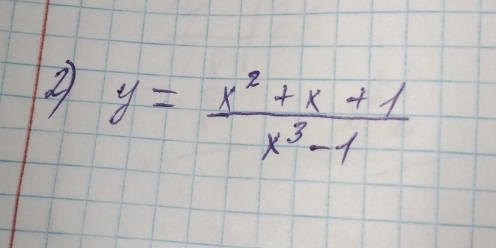 2) y = (x² + x + 1) / (x³ - 1)